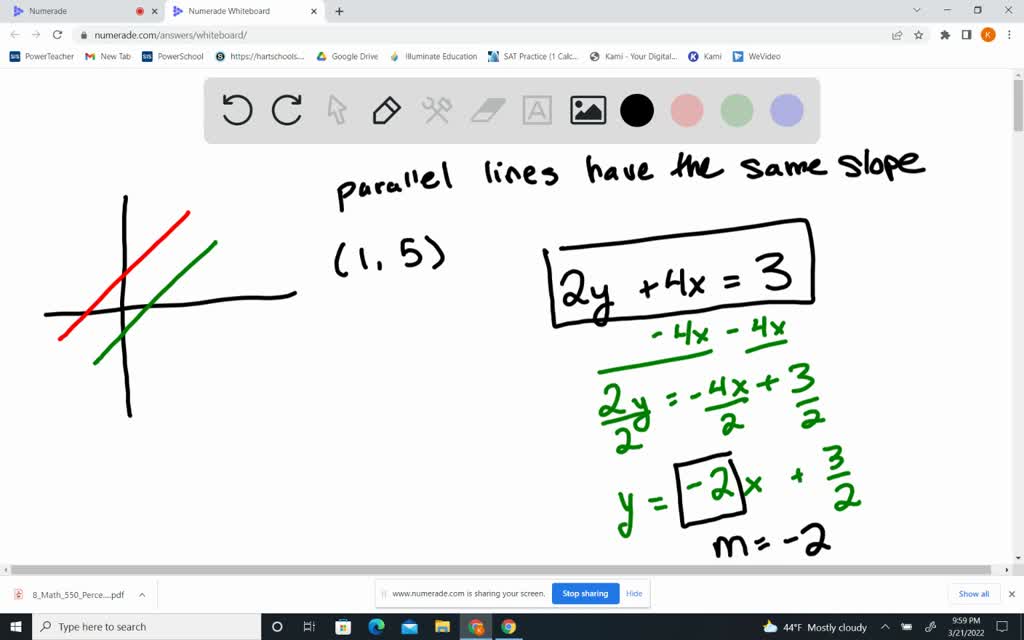 Numerade
Numerade Whiteboard
numerade.com/answers/whiteboard/
K
SIS PowerTeacher
New Tab
SIS PowerSchool
S https://hartschools....
Google Drive
Illuminate Education
SAT Practice (1 Calc...
Kami - Your Digital...
K Kami
WeVideo
A
parallel lines have the same slope
(1, 5)
2y + 4x = 3
- 4x - 4x
2y/2 = - 4x/2 + 3/2
y = -2x + 3/2
m = -2
8_Math_550_Perce....pdf
www.numerade.com is sharing your screen.
Stop sharing
Hide
Show all
Type here to search
44°F Mostly cloudy
9:59 PM
3/21/2022